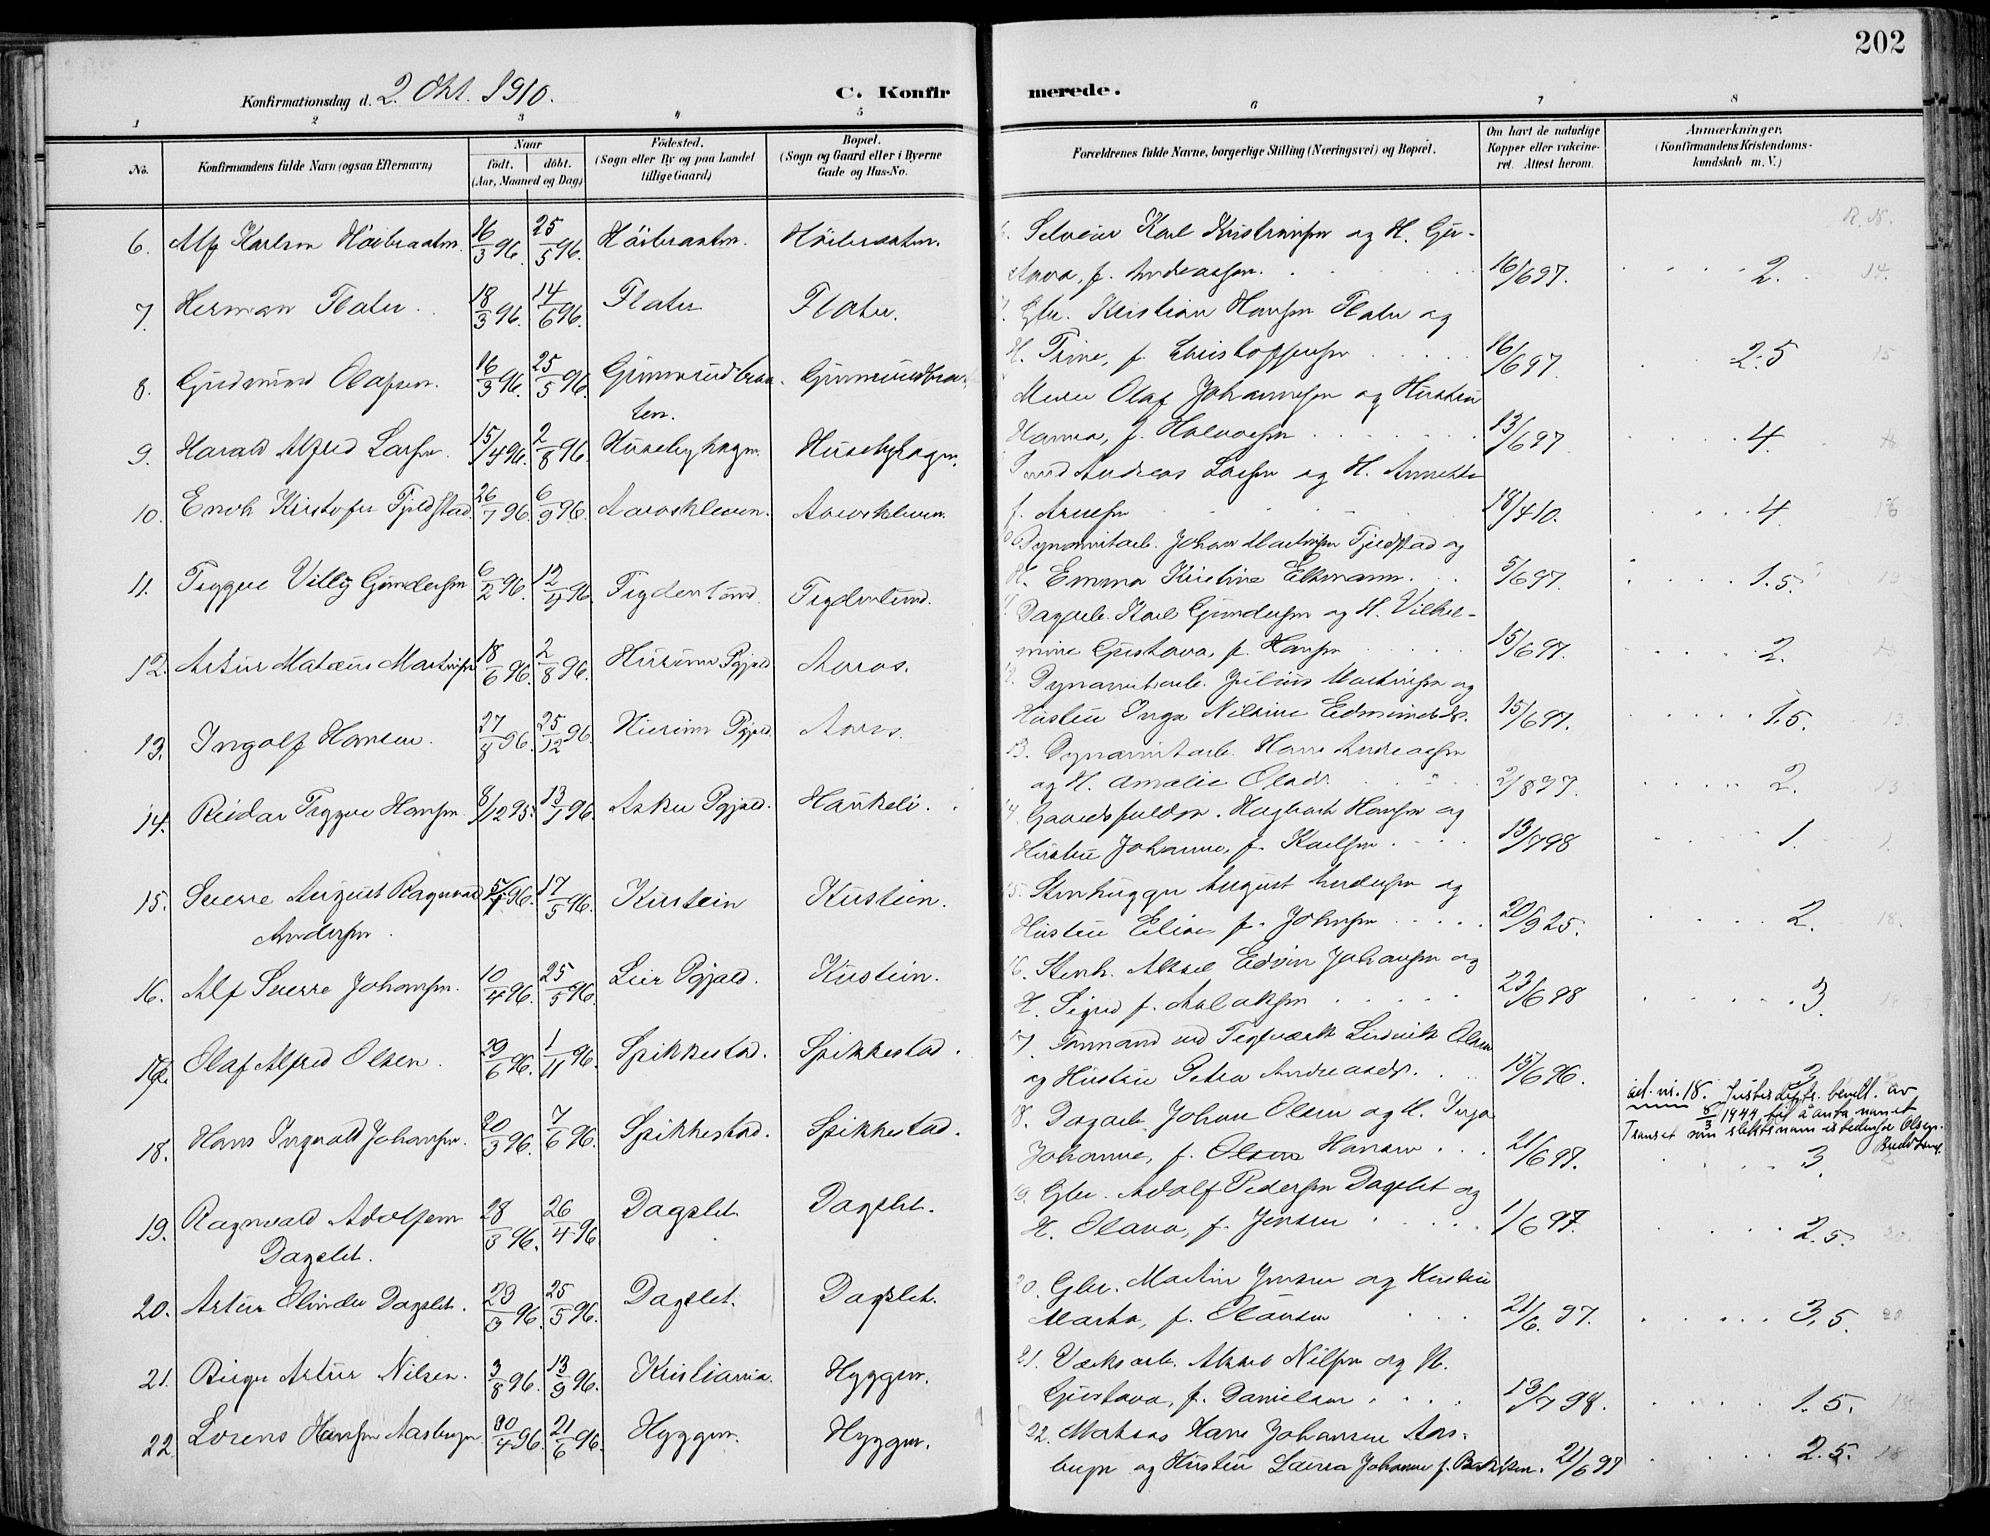 202
Konfirmationsdag d. 2. Okt. 1910.
C. Konfirmerede.
1 2 3 4 5 6 7 8
No.
Konfirmandens fulde Navn (ogsaa Efternavn)
Naar
født. døbt.
(Aar, Maaned og Dag)
Fødested.
(Sogn eller By og paa Landet
tillige Gaard)
Bopæl.
(Sogn og Gaard eller i Byerne
Gade og Hus-No.
Forældrenes fulde Navne, borgerlige Stilling (Næringsvei) og Bopæl.
Om havt de naturlige
Kopper eller vaccine-
ret. Attest herom.
Anmærkninger.
(Konfirmandens Kristendoms-
kundskab m. V.)
6. Alf Karlsen Høibraaten. 16/3 96. 25/5 96. Høibraaten. Høibraaten.
Selveier Karl Kristiansen og H. Gu-
f. Andreassen. 16/6 97. 2. 14.
7. Herman Flater. 18/3 96. 14/6 96. Flater Flater.
Gbr. Kristian Hansen Flater og
H. Trine, f. Christophersen 16/6 97. 2.5 15
8. Gudmund Olafsen. 16/3 96. 25/5 96. Gunnerudbraa-
ten.
Murer Olaf Johannesen og Hustru
Hanna, f. Halvorsen 13/6 97 4.
9. Harald Alfred Larsen. 15/4 96. 2/8 96. Husebyhagen. Husebyhagen.
Andreas Larsen og H. Annette
f. Arnesen 18/4 10. 4. 16
10. Enok Kristofer Fjeldstad 26/7 96. 6/9 96. Aaroskleven. Aaroskleven.
Dynamitarb. Johan Martinsen Fjeldstad og
H. Emma Kristine Ellmann. 5/6 97. 1.5. 13
11. Trygve Villy Gundersen 6/2 96. 12/4 96. Frydenlund. Frydenlund.
Dagarb. Karl Gundersen og H. Vilhel-
mine Gustava, f. Hansen 15/6 97. 2.
12. Artur Matæus Martinsen 18/6 96. 2/8 96. Hurum Pgjæld. Aaros.
Dynamitarb. Julius Martinsen og
Hustru Inga Nilsine Edmundsdr. 15/6 97. 1.5. 13
13. Ingolf Hansen. 27/8 96. 25/12 96. Hurum Pgjæld. Aaros.
13. Dynamitarb. Hans Andreassen
og H. Amalie Olsdr. 2/8 97. 2. 13
14. Reidar Trygve Hansen. 8/12 95. 13/1 96. Asker Pgjæld. Haukeli.
Gaardsfuldm. Hagbart Hansen og
Hustru Johanne, f. Karlsen 13/7 98 1.
15. Sverre August Ragnvald
Andersen. 5/1 96. 17/5 96. Kustein Kustein.
15. Stenhugger August Andersen og
Hustru Elise f. Johnsen 20/9 25. 2. 18.
16. Alf Sverre Johansen. 10/4 96. 25/5 96. Lier Pgjæld. Kustein.
16. Stenh. Aksel Edvin Johansen og
H. Sigrid f. Aslaksen 23/6 98 3.
17. Olaf Alfred Olsen. 29/6 96. 1/11 96. Spikkestad. Spikkestad.
17. Formand ved Teglværk Ludvik Olsen
og Hustru Petra Andreasdr. 15/6 96. 3
18. Hans Ingvald Johansen. 20/3 96. 7/6 96. Spikkestad. Spikkestad.
18. Dagarb. Johan Olsen og H. Inga
Johanne, f. Olsen Hansen 21/6 97. 3.
ad. nr. 18. Justisdeptr. bevilt. av
8/3 1944 for å anta navnet
Transet som slektsnavn istedenfor Olsen.
19. Ragnvald Adolfsen
Dagslet. 28/3 96. 26/4 96. Dagslet. Dagslet.
19. Gbr. Adolf Pedersen Dagslet og
H. Olava, f. Jensen 1/6 97. 2.5. 20.
20. Artur Elinder Dagslet. 23/3 96. 25/5 96. Dagslet. Dagslet.
20. Gbr. Martin Jensen og Hustru
Marta, f. Olausen 21/6. 97. 3.5. 20
21. Birger Artur Nilsen. 3/8 96. 13/9 96. Kristiania. Hyggen.
21. Værksarb. Aksel Nilsen og H.
Gustava, f. Danielsen 13/7 98. 1.5.
22. Lorens Hansen Aasbugen 30/4 96. 21/6 96. Hyggen. Hyggen.
22. Matros Hans Johansen Aas-
bugen og Hustru Laura Johanne f. Baltsen. 21/6 97 2.5. 18